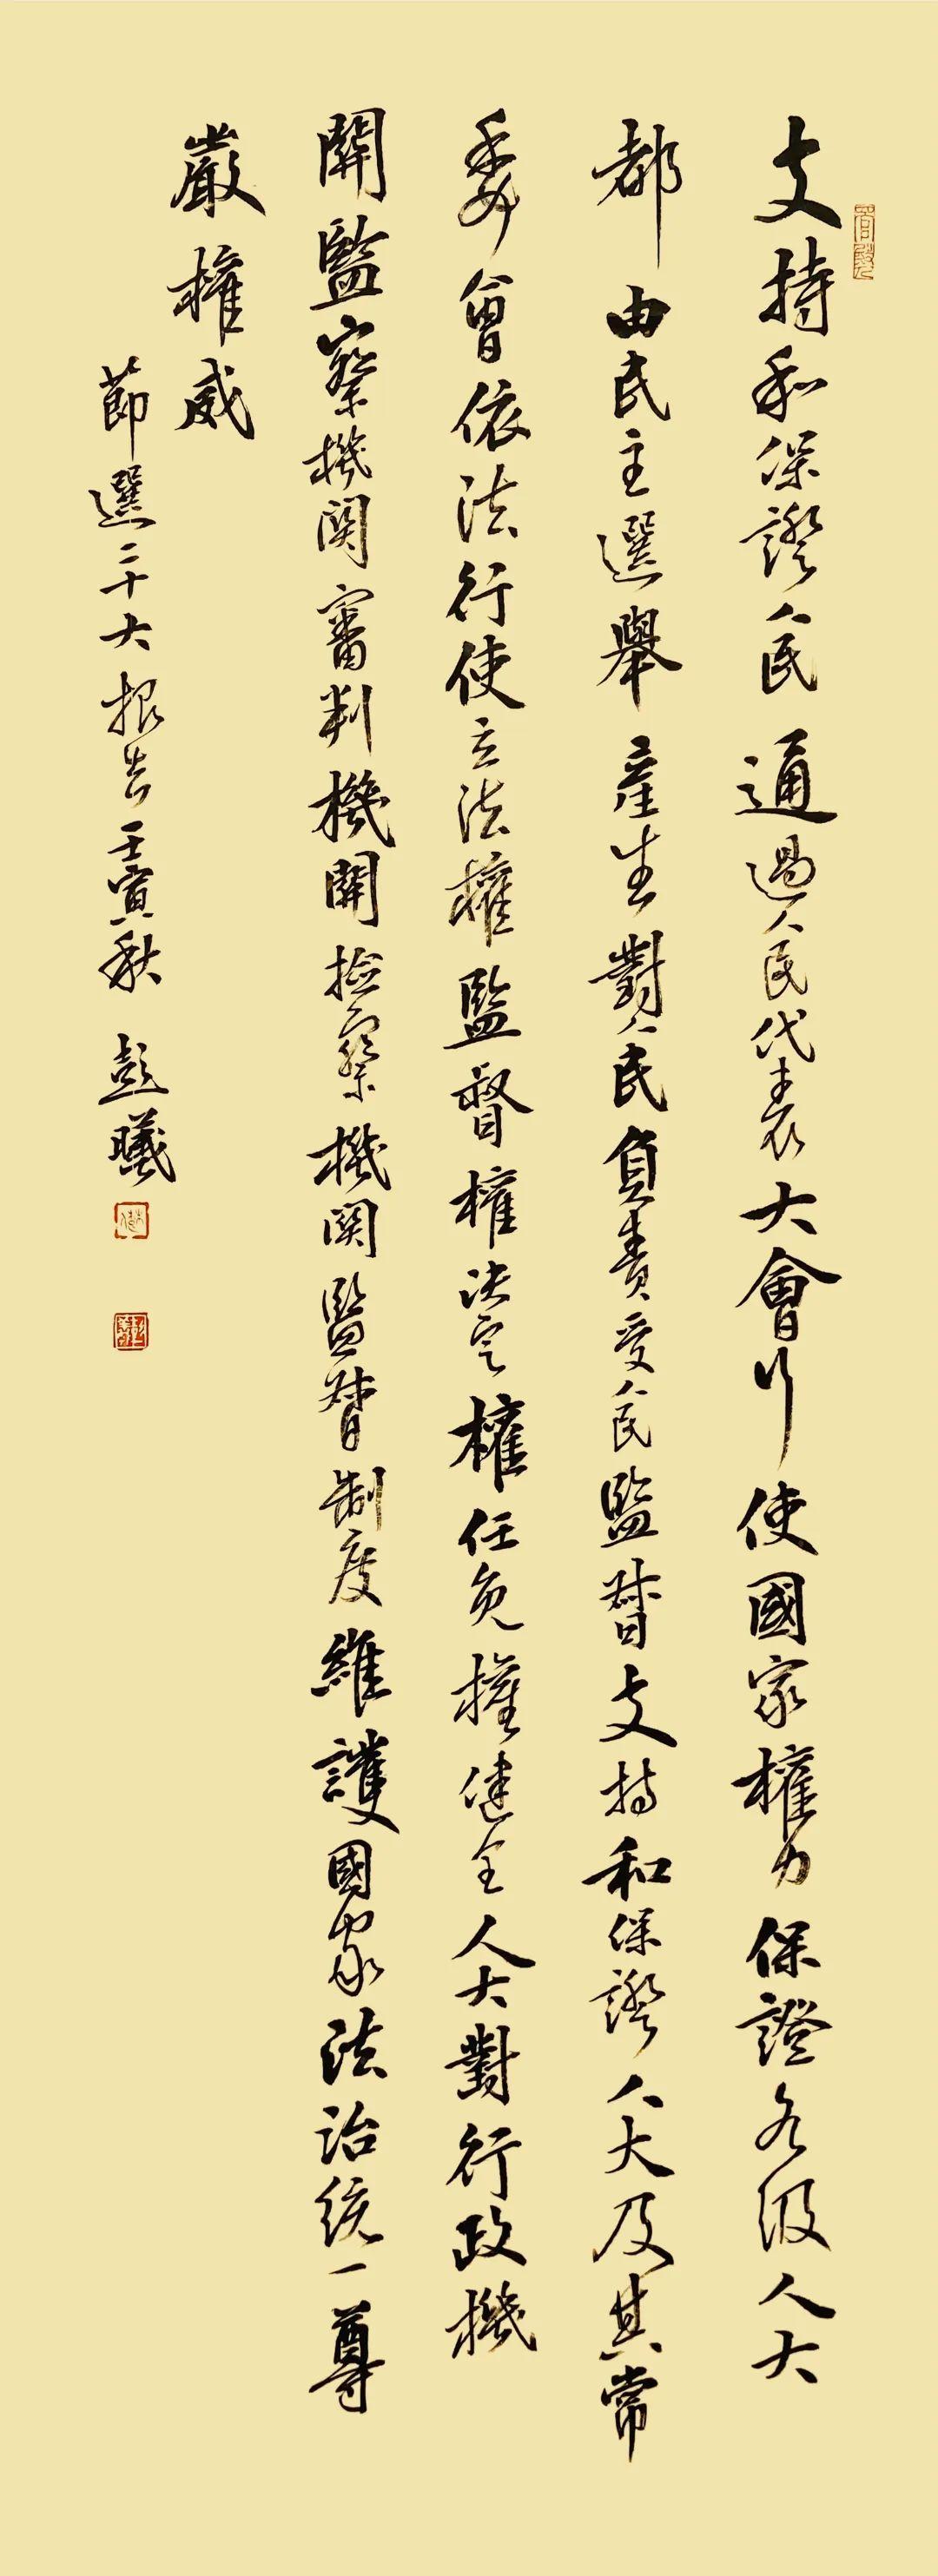 支持和保證人民通過人民代表大會行使國家權力保證各級人大
都由民主選舉產生對人民負責受人民監督支持和保證人大及其常
委會依法行使立法權監督權決定權任免權健全人大對行政機
關監察機關審判機關檢察機關監督制度維護國家法治統一尊
嚴權威
節選二十大報告壬寅秋 彭曦